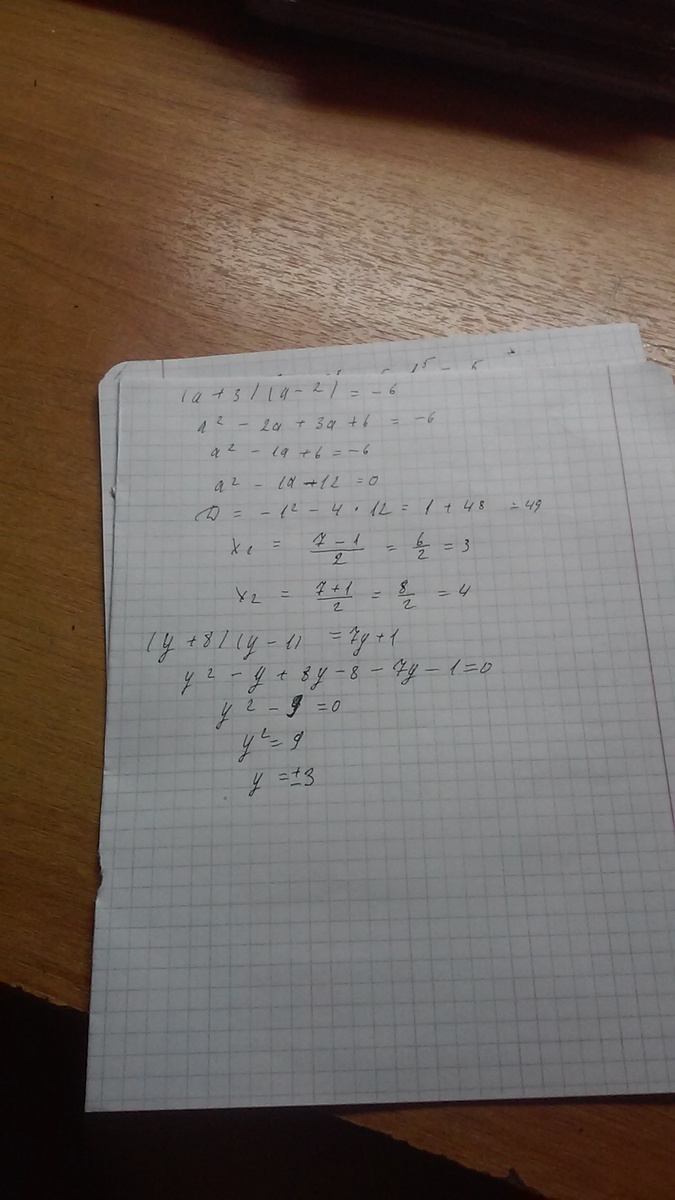 (a + 3)(a - 2) = -6
a² - 2a + 3a + 6 = -6
a² - 1a + 6 = -6
a² - 1a + 12 = 0
D = -1² - 4 · 12 = 1 + 48 = 49
x₁ = (7 - 1)/2 = 6/2 = 3
x₂ = (7 + 1)/2 = 8/2 = 4
(y + 8)(y - 1) = 7y + 1
y² - y + 8y - 8 - 7y - 1 = 0
y² - 9 = 0
y² = 9
y = ±3